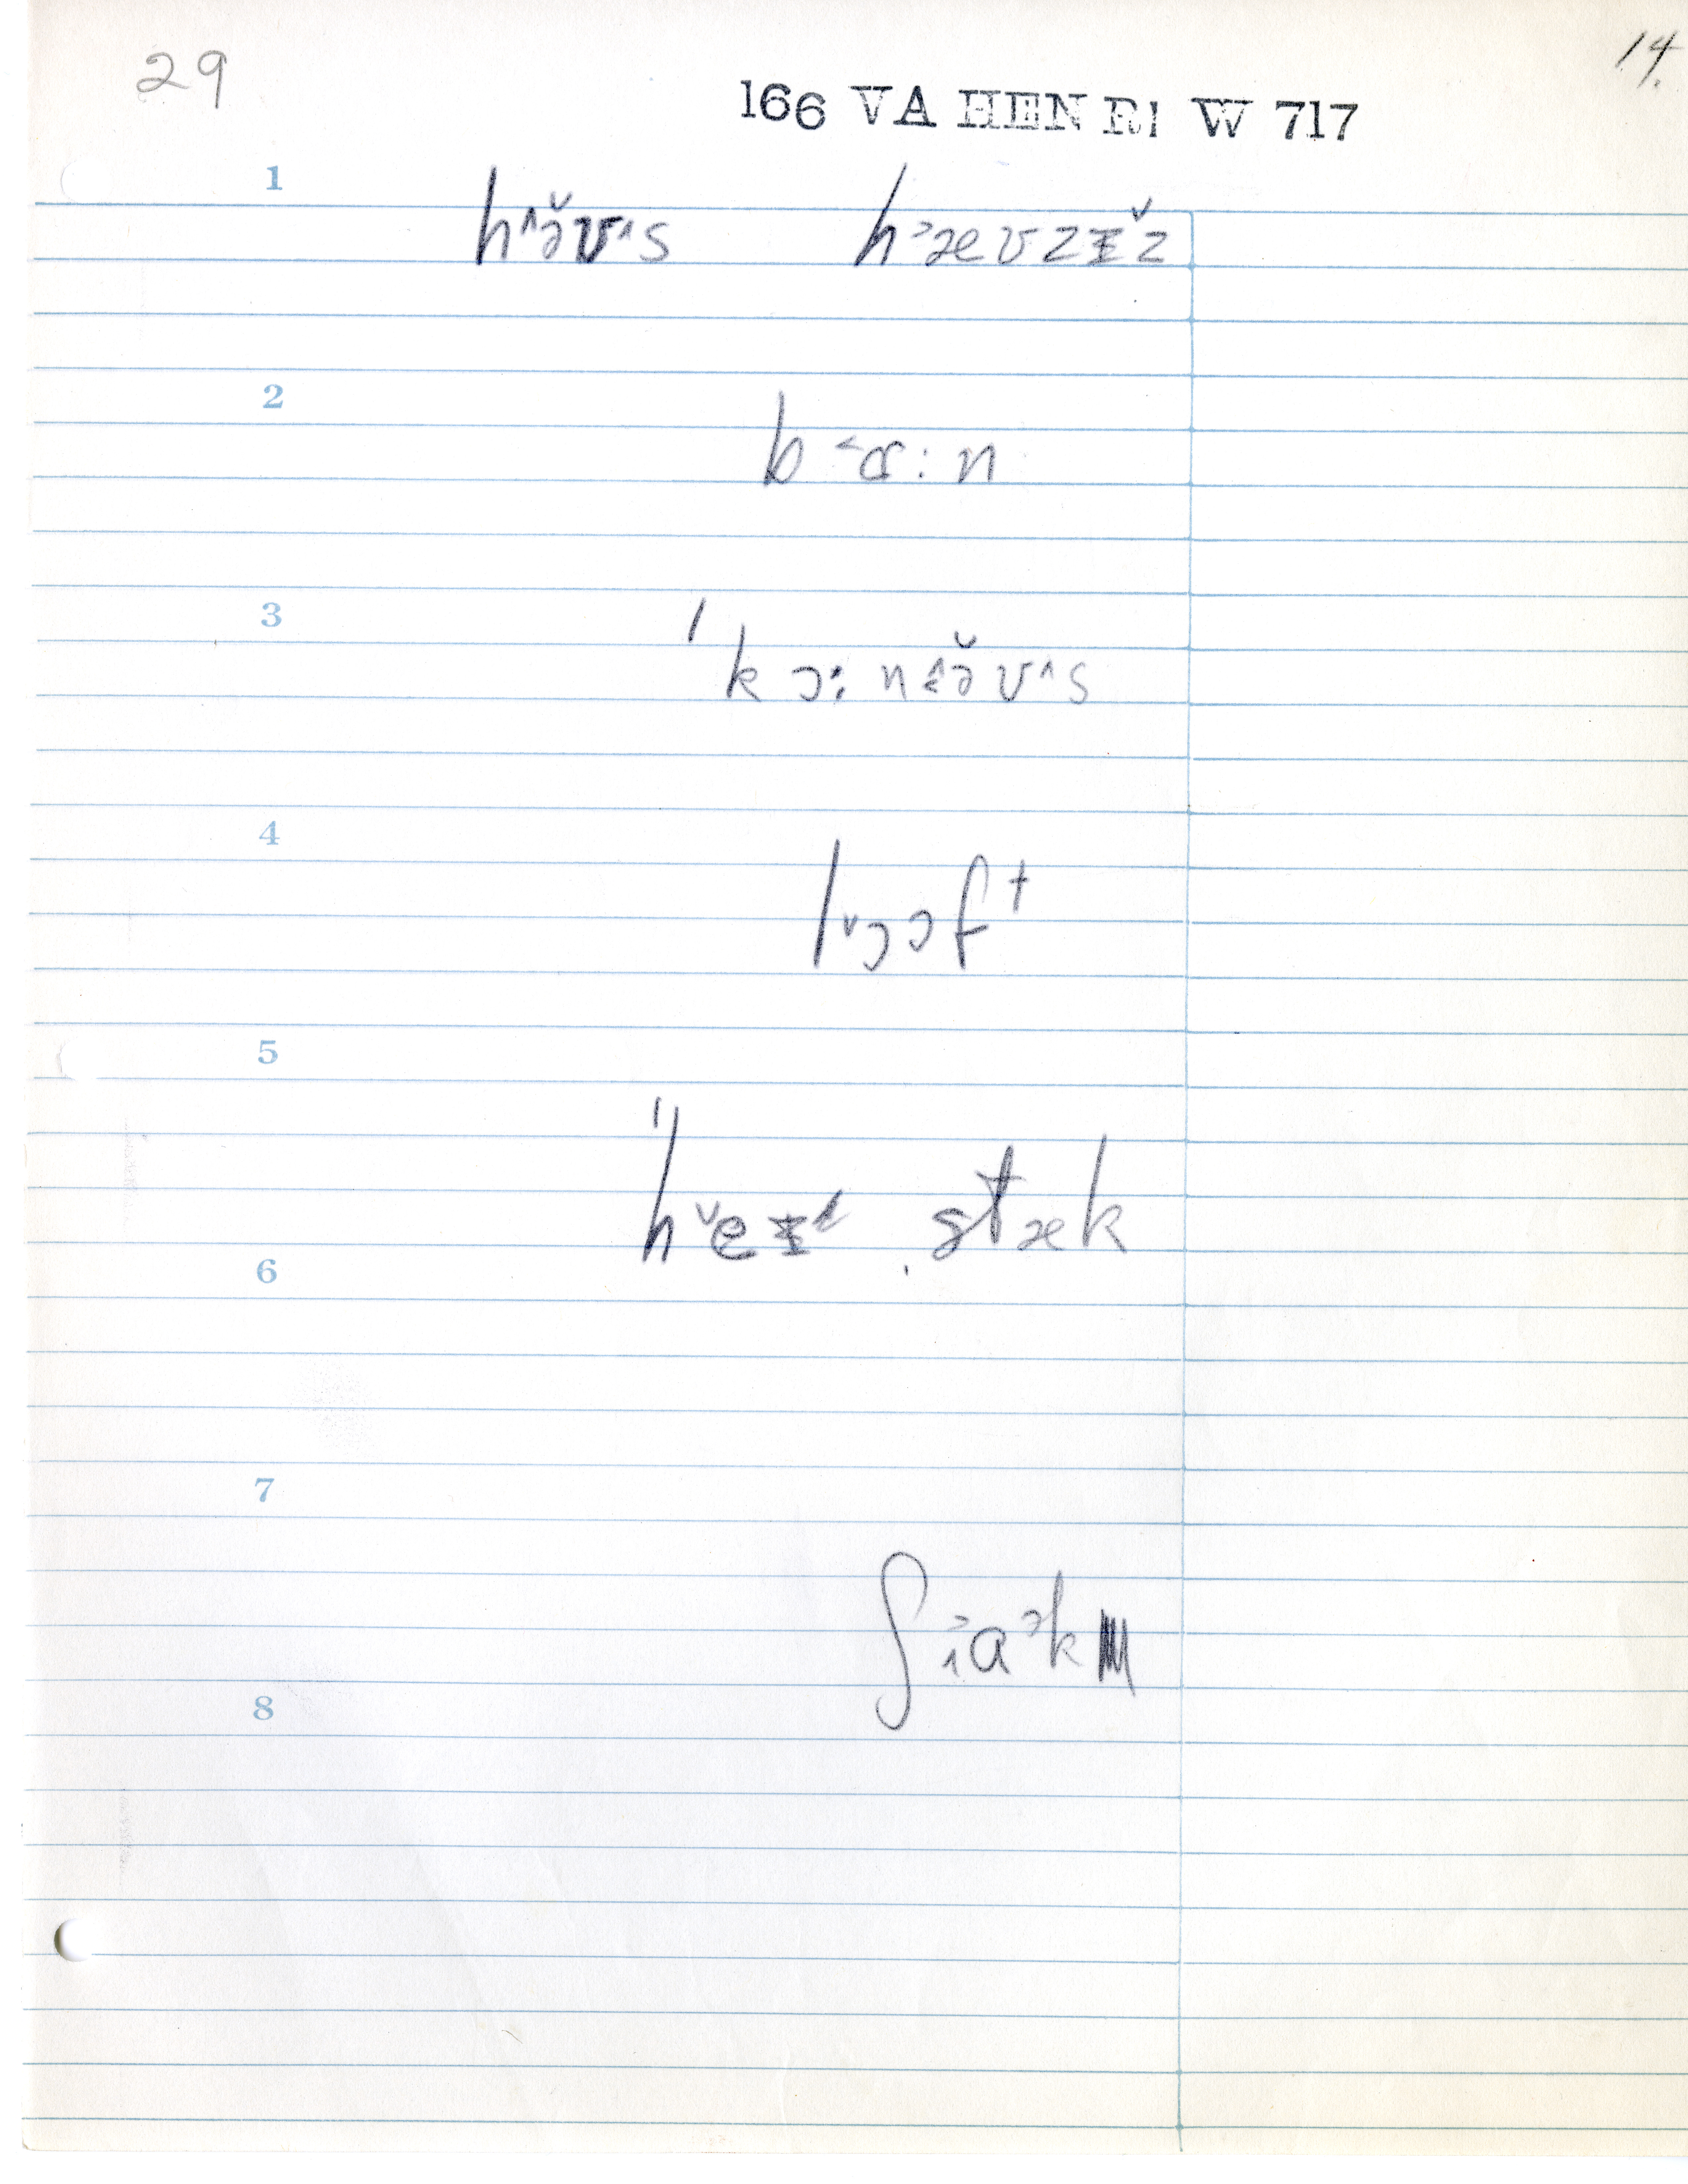 29 14.
166 VA HENRI W 717
1 h˄ə̆ʊ˄s h˃æʊzɪ̆z
2
b˂ɑ:n
3
ˈkɔ:nə̆ʊ˄s
4
l˅ɔɔft
5
ˈh˅eɪ stæk
6
7
ʃak
8